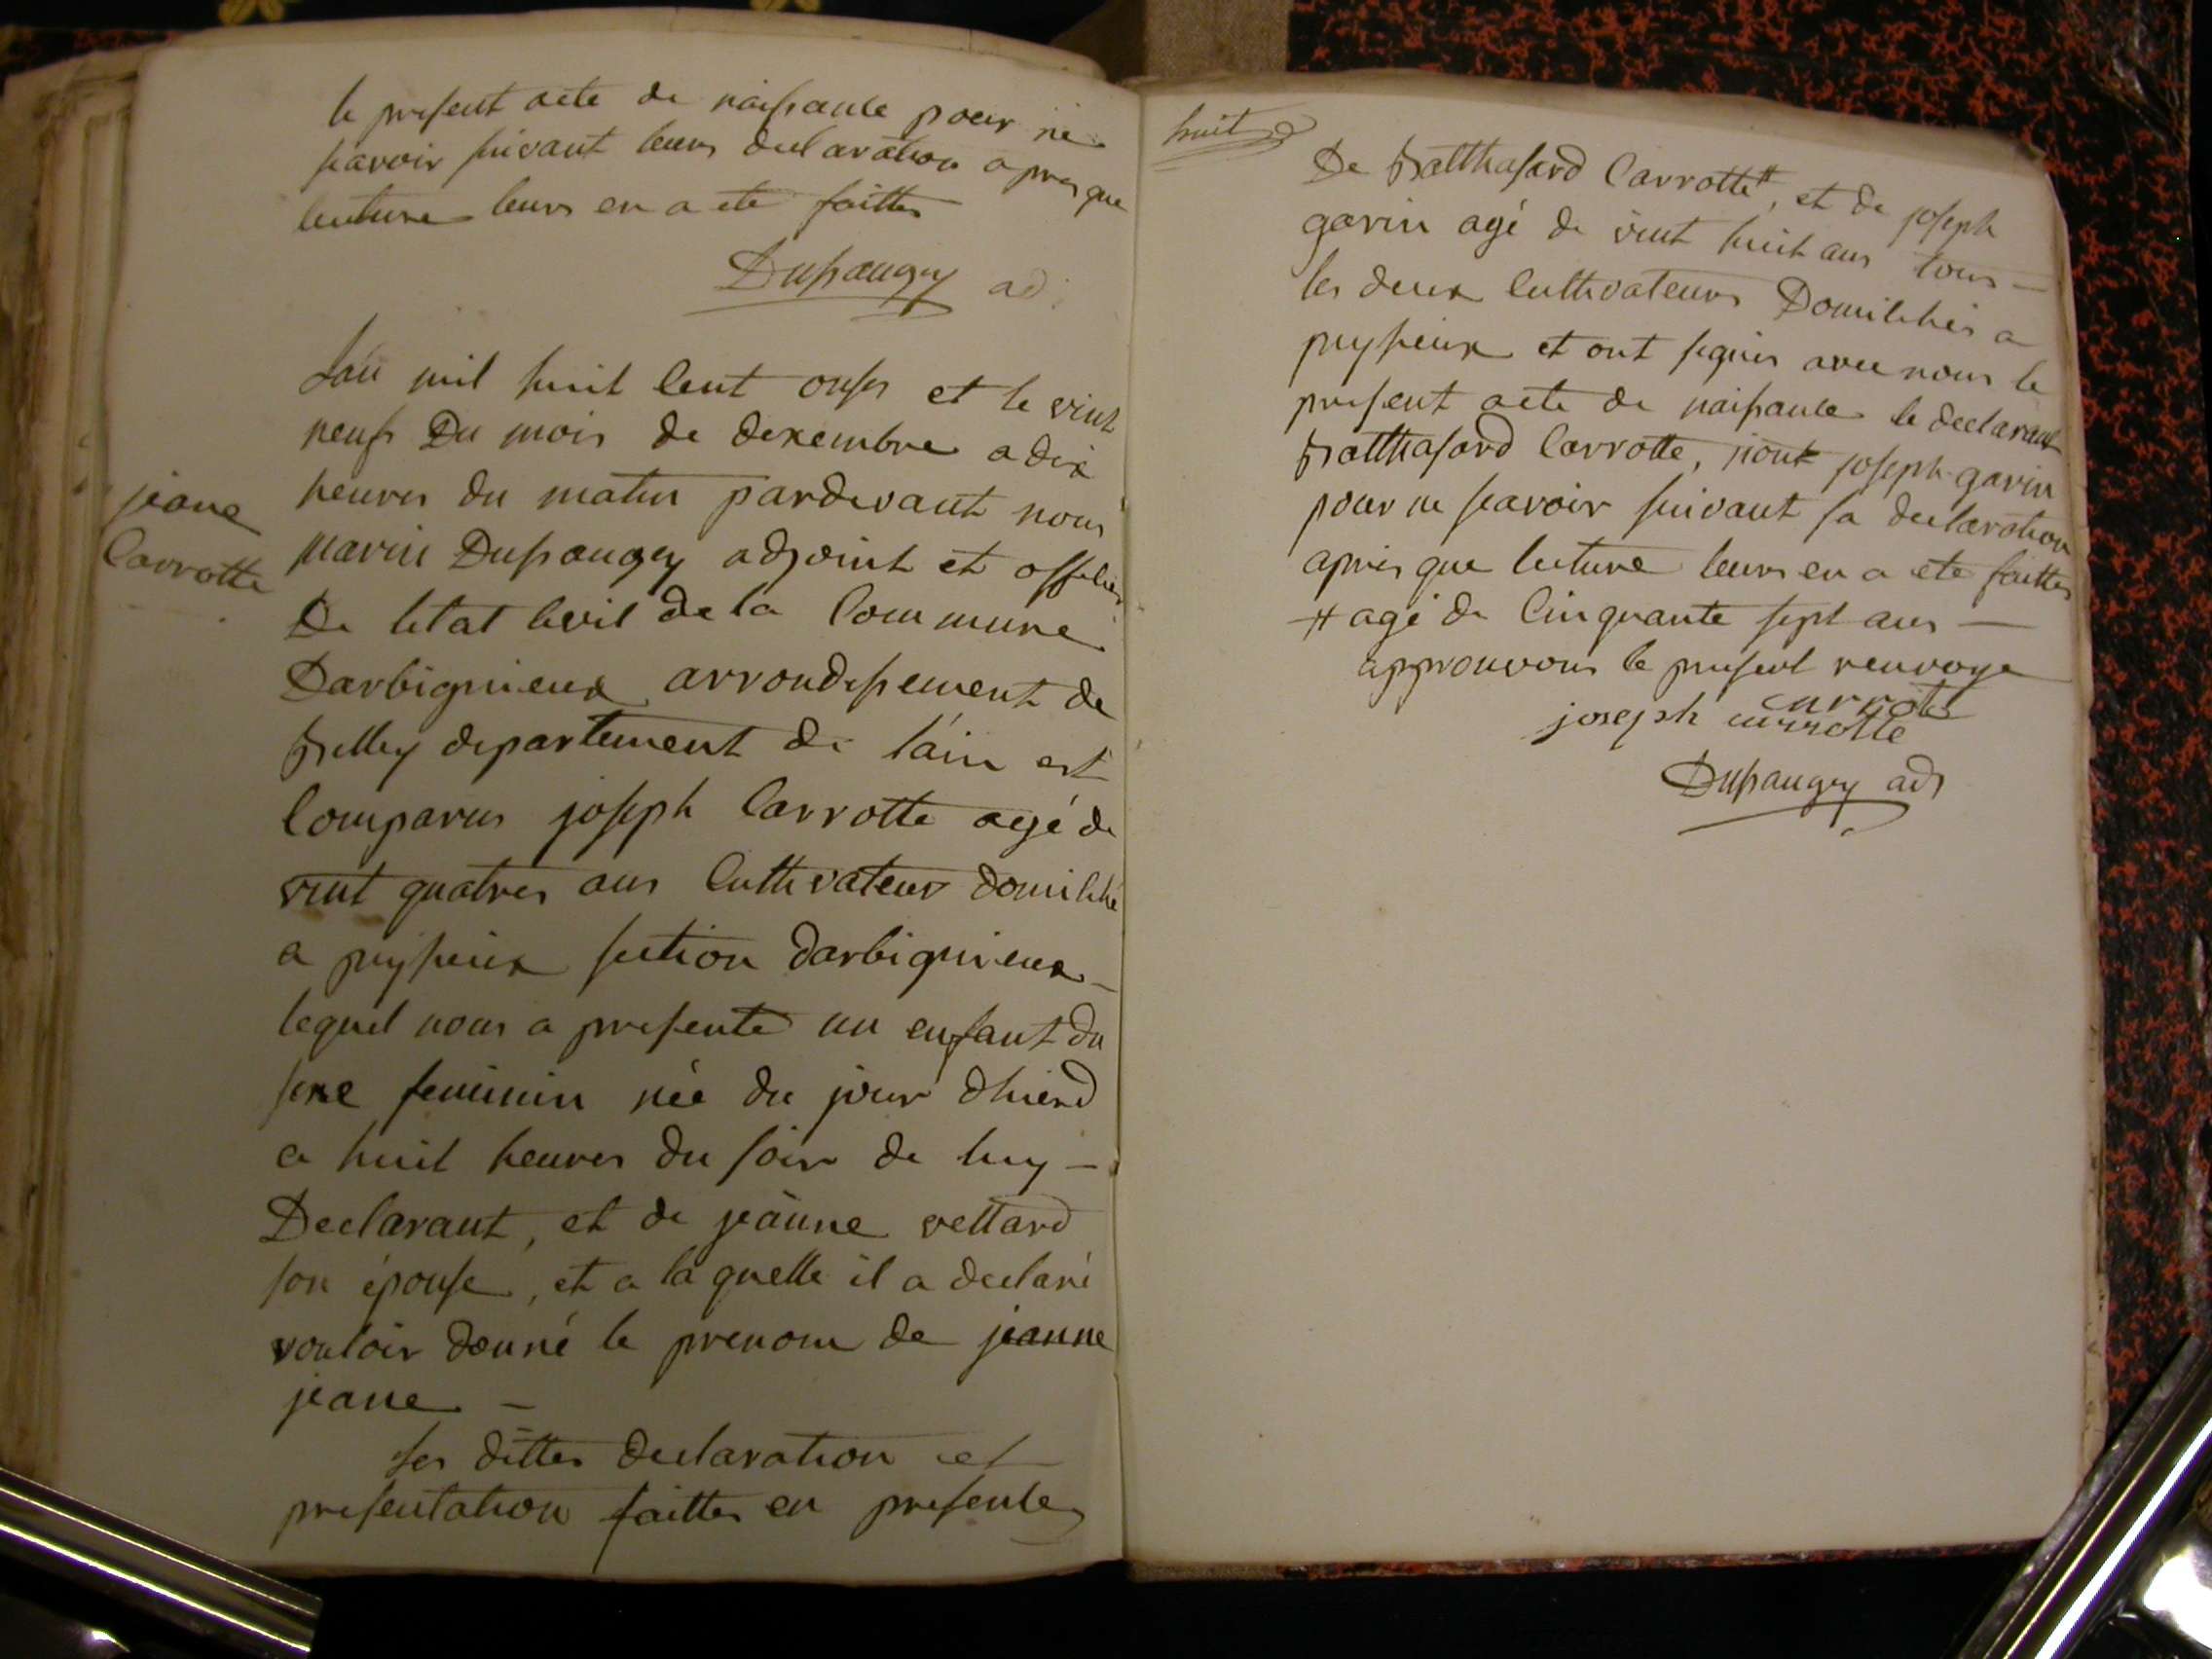 le present acte de naissance pour ne
scavoir suivant leurs declaration apres que
lecture leurs en a ete faittes
Dupaugey adj
Lan mil huit cent onses et le vint
neufs Du mois de dexembre a dix
heures du matin pardevant nous
marin Dupaugey adjoint et officier
De letat cevil de la Commune
Darbignieux arrondissement de
Belley departement de l'ain est
Comparus joseph Carrotte agé de
vint quatres ans Cultivateur domicilié
a peyssieux section darbignieux
lequel nous a presenté un enfant du
sexe feminin née du jour dhierd
a huit heures du soir de luy
Declarant, et de jeanne vettard
son épouse, et a la quelle il a declaré
vouloir donné le prenom de jeanne
jeane
les dittes declaration et
presentation faittes en presences
jeane
Carrotte
huit
De Balthasard Carrotte #, et de joseph
gavin agé de vint huit ans tous
les deux Cultivateurs Domiciliés a
peyssieux et ont signés avec nous le
present acte de naissances le declarant
Balthasard Carrotte, nont joseph gavin
pour ne scavoir suivant sa declaration
apres que lecture leurs en a ete faittes
# agé de Cinquante sept ans
approuvons le present renvoye
carrote
joseph carrotte
Dupaugey adj